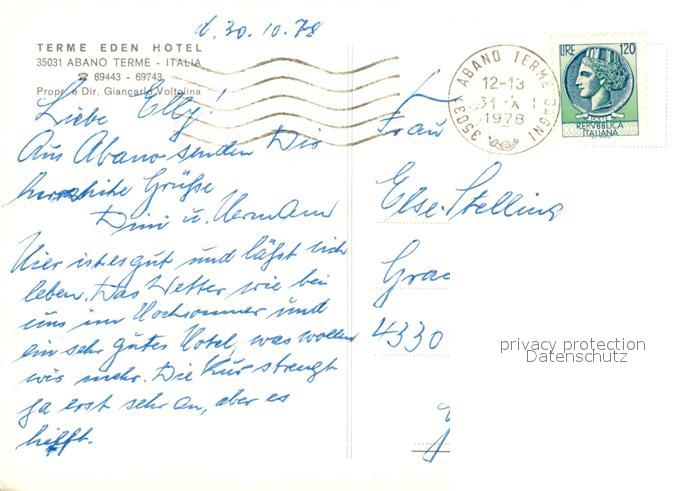 d. 30.10.78
TERME EDEN HOTEL
35031 ABANO TERME - ITALIA
☎ 69443 - 69743
Propr. e Dir. Giancarlo Voltolina
Liebe Elly!
Aus Abano senden Dir
herzliche Grüße
Dini u. Hermann
Hier ist es gut und läßt sich
leben. Das Wetter wie bei
uns im Hochsommer und
ein sehr gutes Hotel, was wollen
wir mehr. Die Kur strengt
ja erst sehr an, aber es
hilft.
35031 ABANO TERME BAGNI
12-13
31 X
1978
LIRE 120
REPVBBLICA
ITALIANA
Frau
Else Stelling
Grac
4330
privacy protection
Datenschutz